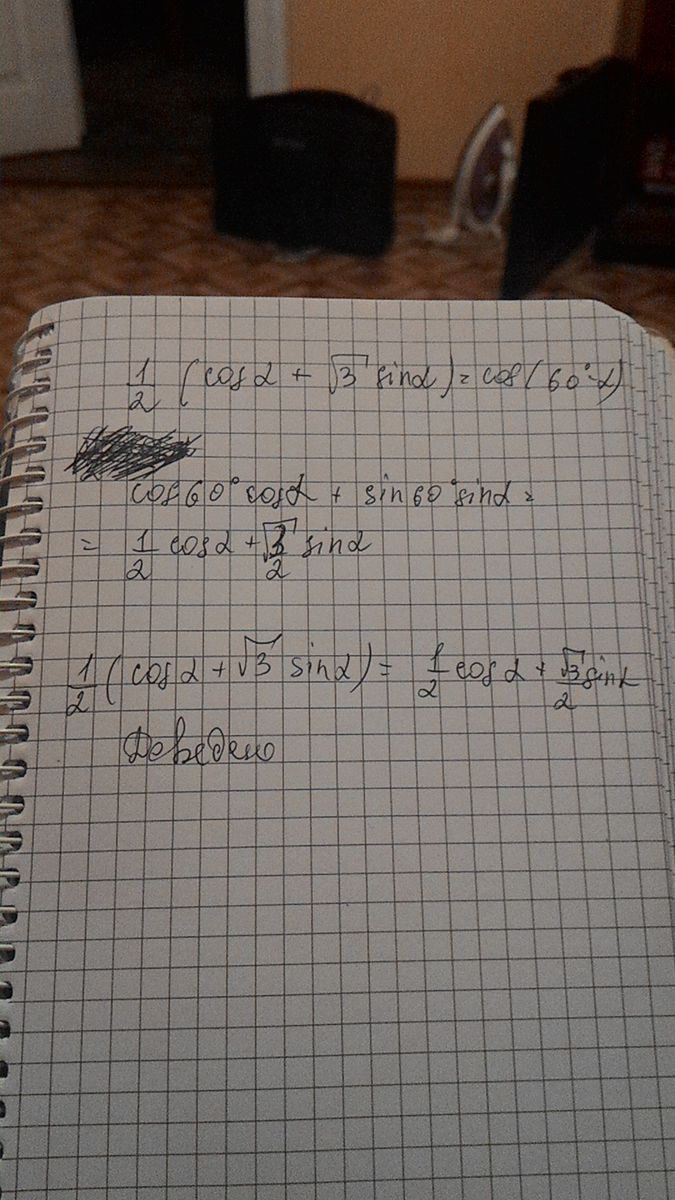 1/2 (cosα + √3 sinα) = cos(60°-α)
cos60°cosα + sin60°sinα =
= 1/2 cosα + √3/2 sinα
1/2 (cosα + √3 sinα) = 1/2 cosα + √3/2 sinα
Доведено